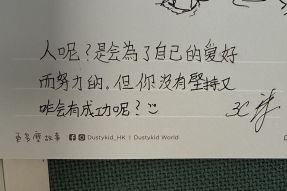 人呢?是会為了自己的愛好
而努力的。但你沒有堅持又
咋会有成功呢?
Dustykid_HK | Dustykid World